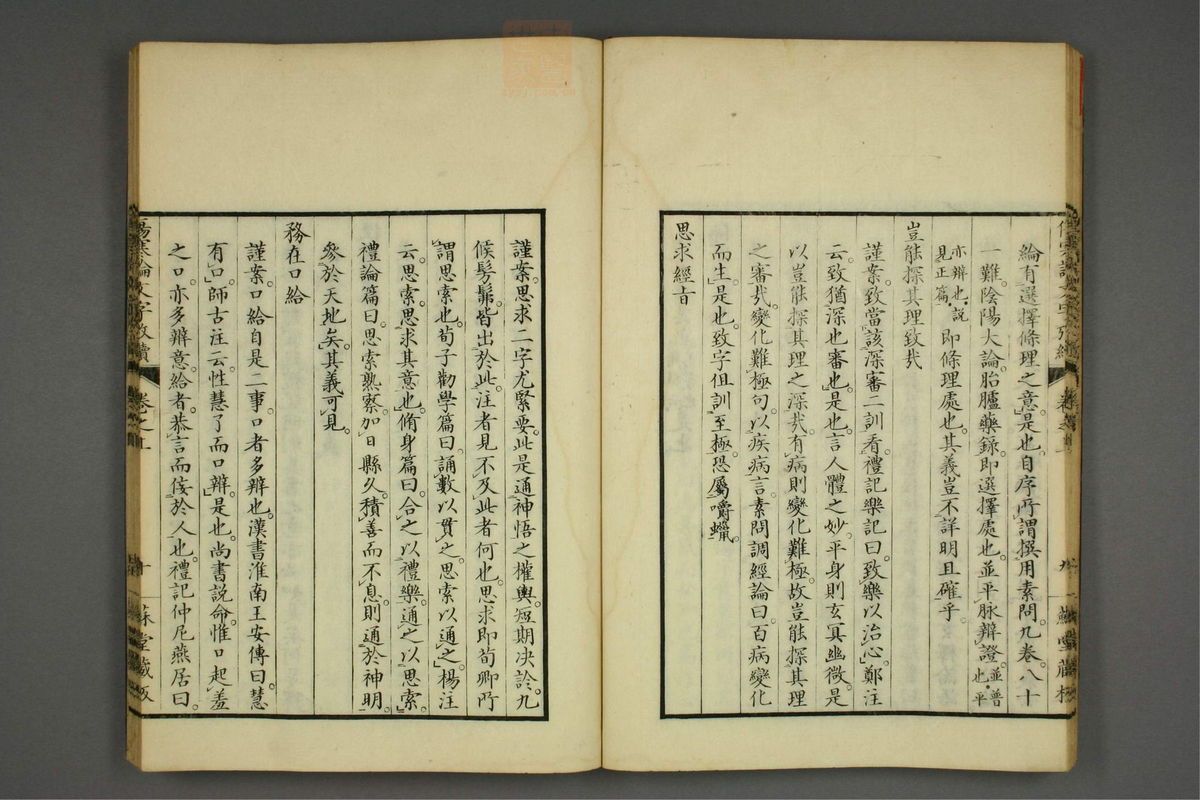 綸有選擇條理之意是也自序所謂撰用素問九卷八十
一難陰陽大論胎臚藥錄即選擇處也並平脉辯證並普也平
亦辨也說見正篇即條理處也其義豈不詳明且確乎
豈能探其理致哉
謹案致當該深審二訓看禮記樂記曰致樂以治心鄭注
云致猶深也審也是也言人體之妙平身則玄冥幽微是
以豈能探其理之深哉有病則變化難極故豈能探其理
之審哉變化難極句以疾病言素問調經論曰百病變化
而生是也致字但訓至極恐屬嚼蠟
思求經旨
謹案思求二字尤緊要此是通神悟之權輿短期决診九
候髣髴皆出於此注者見不及此者何也思求即荀卿所
謂思索也荀子勸學篇曰誦數以貫之思索以通之楊注
云思索思求其意也脩身篇曰合之以禮樂通之以思索
禮論篇曰思索熟察加日縣久積善而不息則通於神明
參於天地矣其義可見
務在口給
謹案口給自是二事口者多辨也漢書淮南王安傳曰慧
有口師古注云性慧了而口辨是也尚書說命惟口起羞
之口亦多辨意給者恭言而倿於人也禮記仲尼燕居曰
傷寒論文字攷續
卷之上
十
穌堂藏板